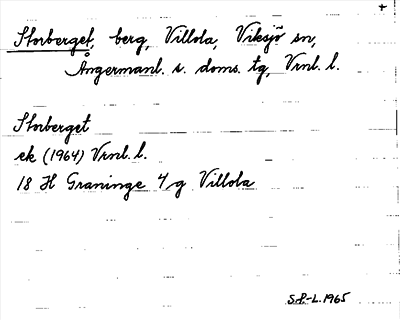 Storberget, berg, Villola, Viksjö sn,
Ångermanl. s. doms. tg, Vrnl. l.
Storberget
ek (1964) Vrnl. l.
18 H Graninge 4/g Villola
S.P.-L. 1965